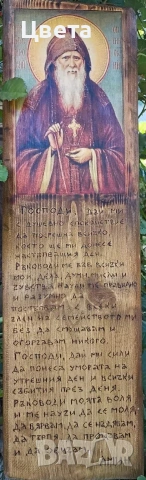 Цвета
Господи, дай ми
душевно спокойствие
да посрещна всичко,
което ще ми донесе
настъпващия ден.
Ръководи ме във всички
мои дела, думи, мисли и
чувства. Научи ме правилно
и разумно да
постъпвам с
членовете на семейството ми
без да смущавам и
огорчавам никого.
Господи, дай ми сили
да понеса умората на
утрешния ден и всички
събития през деня.
Ръководи моята воля
и ме научи да се моля,
да вярвам, да се надявам,
да търпя, да прощавам
и да обичам.
Амин
bazar